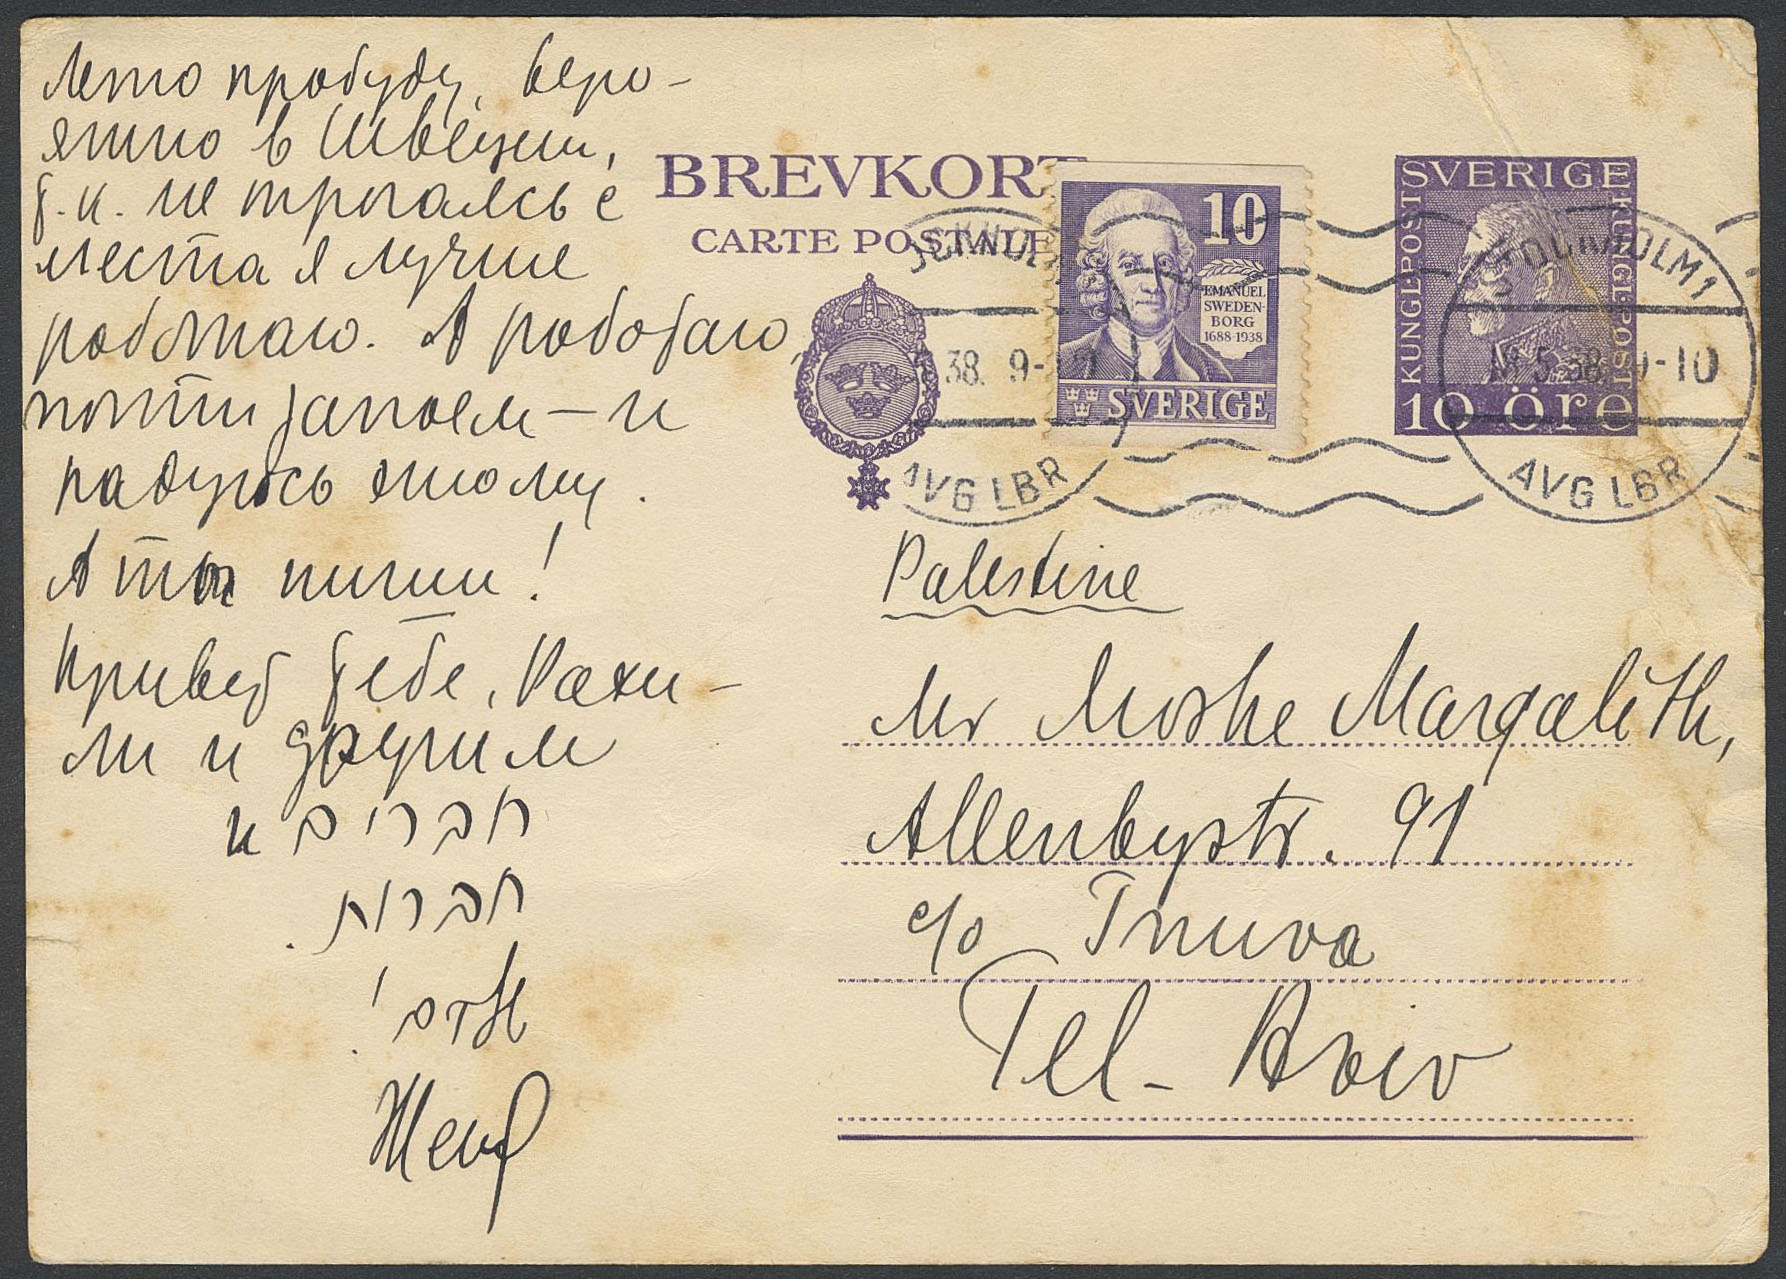 Лето пробуду, веро-
ятно в Швеции,
т.к. не трогаясь с
места я лучше
работаю. А работаю,
почти запоем — и
радуюсь этому.
А ты пиши!
Привет тебе, Рахи-
ли и другим
חברים и
חברות.
שלך!
Женя
BREVKORT
CARTE POSTALE
10
EMANUEL
SWEDEN-
BORG
1688-1938
SVERIGE
SVERIGE
KUNGL·POST
KUNGL·POST
10 öre
STOCKHOLM 1
38. 9-10
AVG LBR
STOCKHOLM 1
18.5.38. 9-10
AVG LBR
Palestine
Mr Moshe Margalith,
Allenbystr. 91
c/o Tnuva
Tel-Aviv